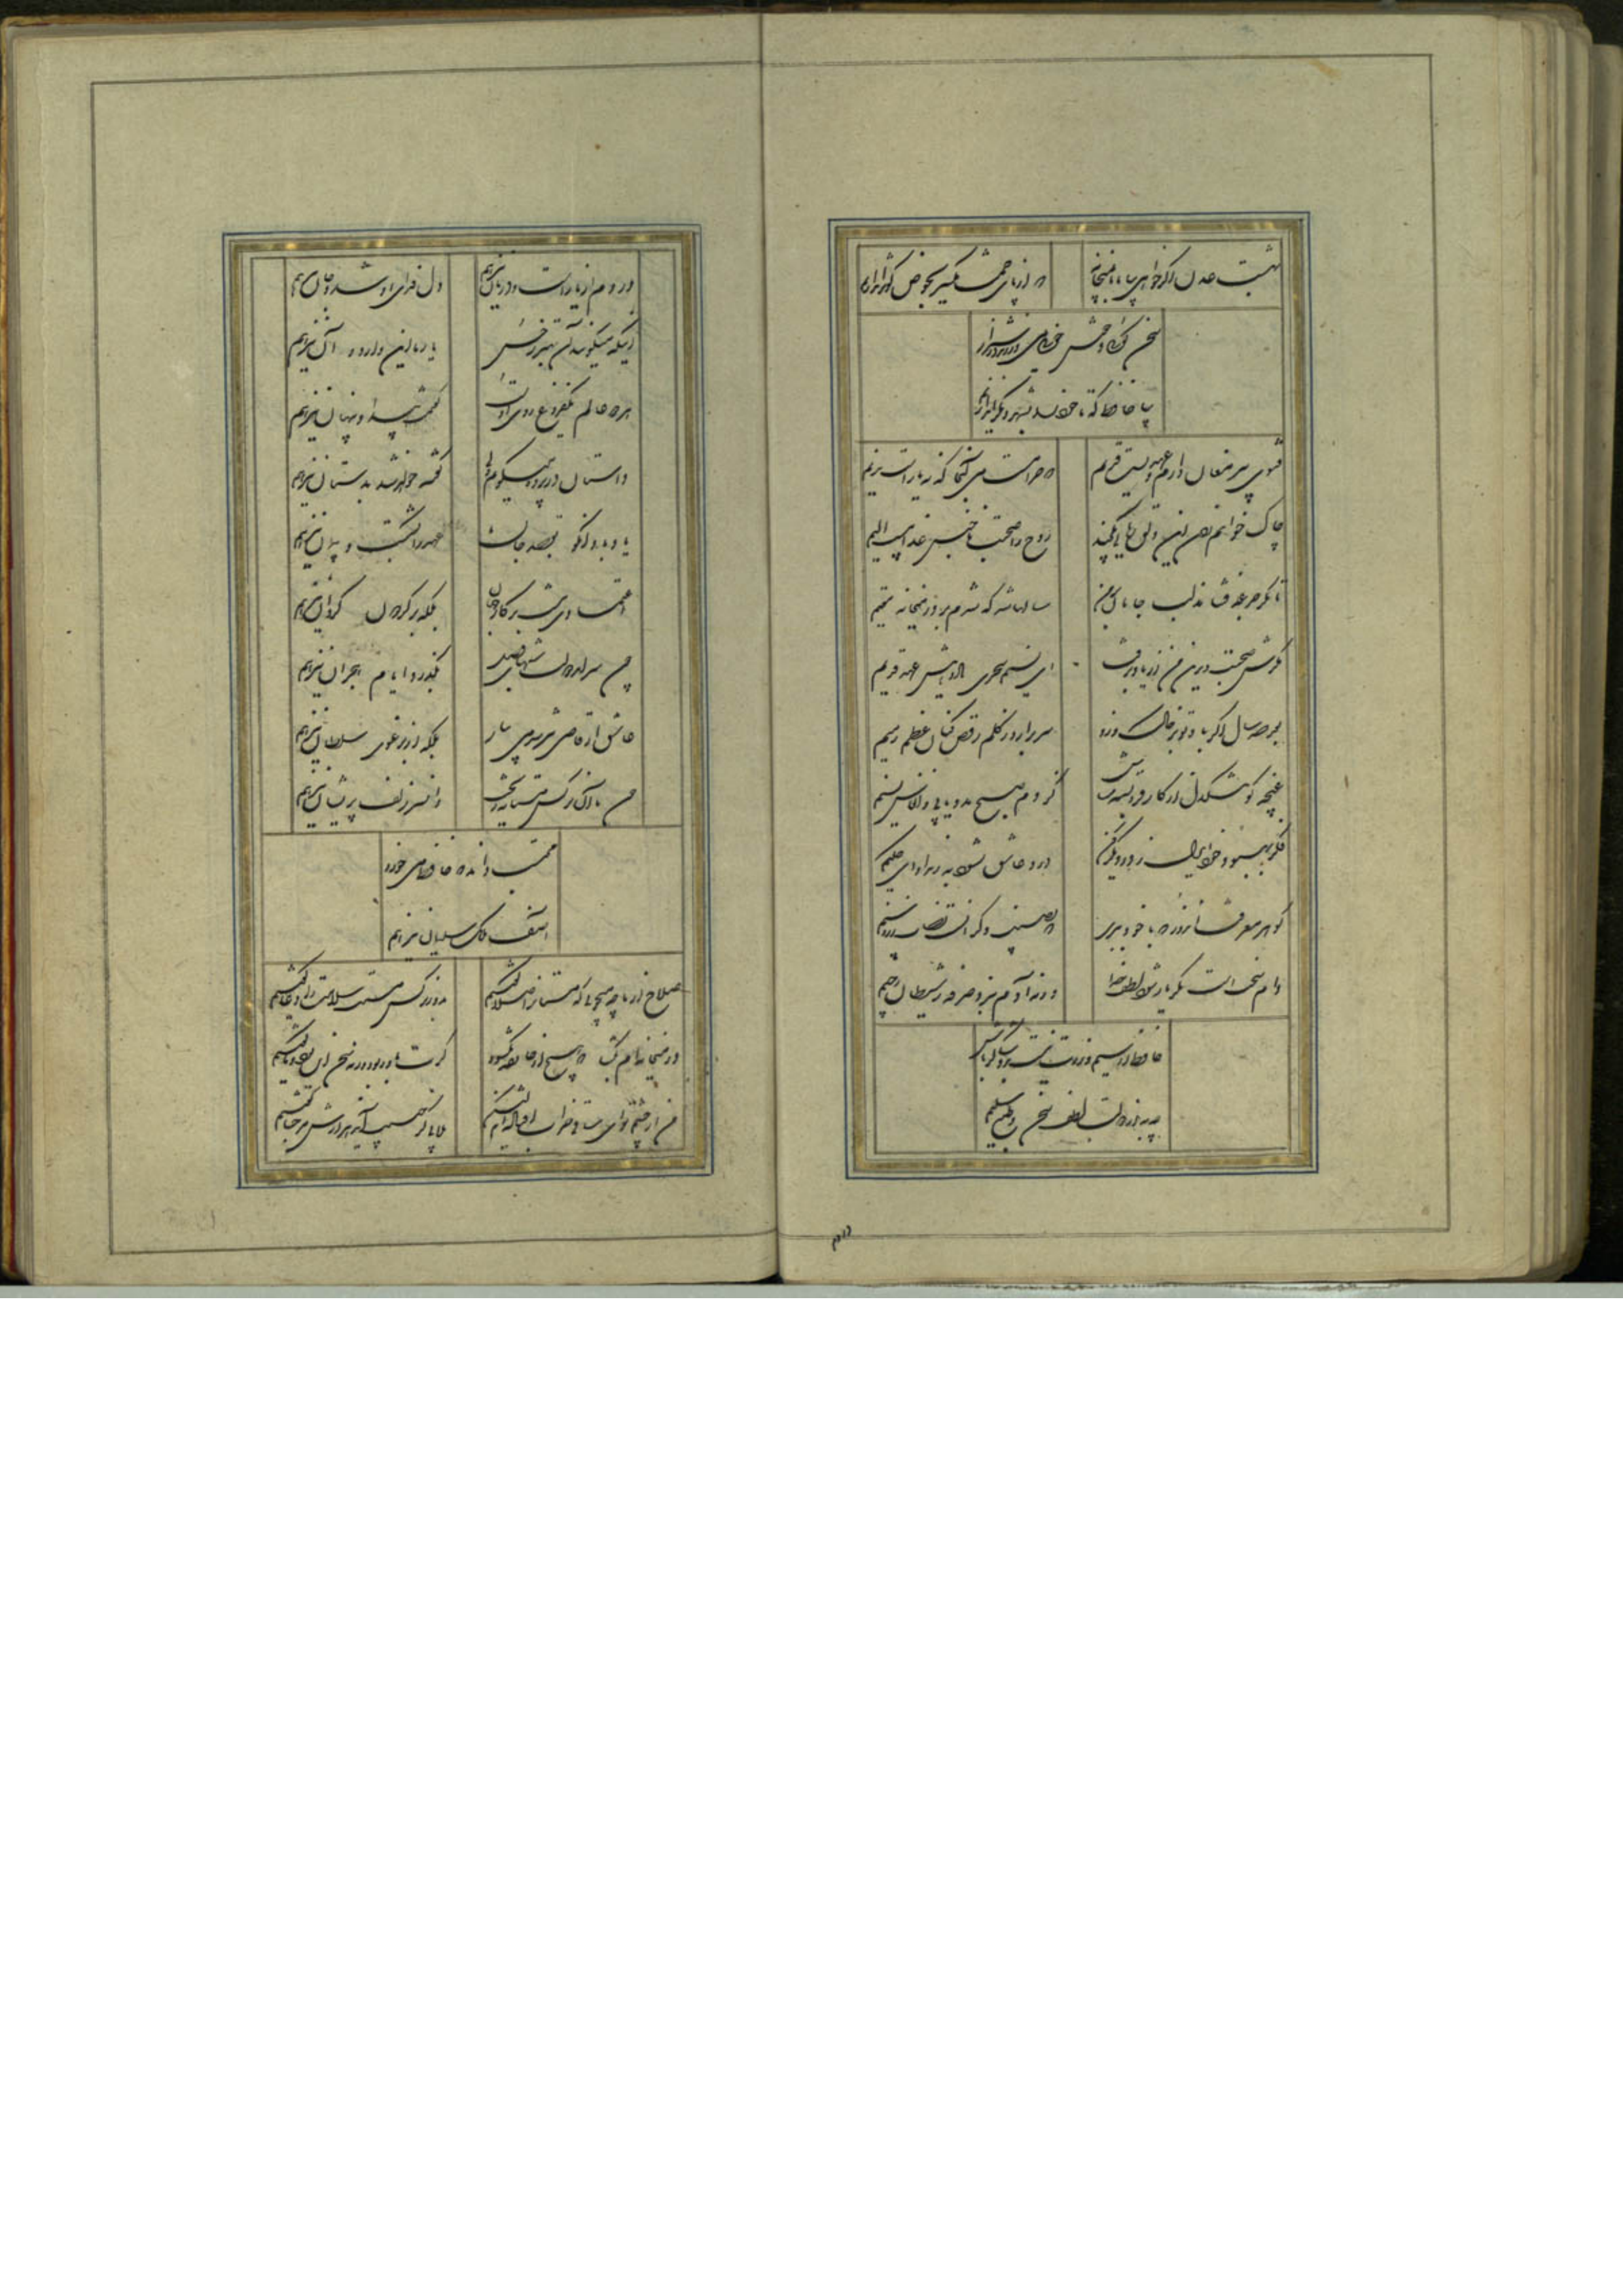 بهشت عدن اگر خواهی بیا با ما بمیخانه
که از پای خمت یکسر بحوض کوثر اندازیم
سخن دانی و خوشخوانی نمی‌ورزند در شیراز
بیا حافظ که تا خود را بشهری دیگر اندازیم
فتوی پیر مغان دارم و عهدیست قدیم
که حرامست می آنجا که نه یارست ندیم
چاک خواهم زدن این دلق ریایی چکنم
روح را صحبت ناجنس عذابیست الیم
تا مگر جرعه فشاند لب جانان بر من
سالها شد که شدم بر در میخانه مقیم
مگرش صحبت دیرین من از یاد برفت
ای نسیم سحری یاد دهش عهد قدیم
بعد صد سال اگر بر سر خاکم گذری
سر برآرد ز گلم رقص کنان عظم رمیم
غنچه گو تنگدل از کار فروبسته مباش
کز دم صبح مدد یابی و انفاس نسیم
فکر بهبود خود ای دل ز در دیگر کن
درد عاشق نشود به ز مداوای حکیم
گوهر معرفت اندوز که با خود ببری
که نصیب دگرانست نصاب زر و سیم
دام سختست مگر یار شود لطف خدا
ور نه آدم نبرد صرفه ز شیطان رجیم
حافظ ار سیم و زرت نیست برو شاکر باش
چه به از دولت لطف سخن و طبع سلیم
دردم از یارست و درمان نیز هم
دل فدای او شد و جان نیز هم
اینکه میگویند آن بهتر ز حسن
یار ما این دارد و آن نیز هم
هر دو عالم یک فروغ روی اوست
گفتمت پیدا و پنهان نیز هم
داستان در پرده میگویم ولی
گفته خواهد شد بدستان نیز هم
یاد باد آنکو بقصد جان ما
عهد را بشکست و پیمان نیز هم
اعتمادی نیست بر کار جهان
بلکه بر گردون گردان نیز هم
چون سر آمد دولت شبهای وصل
بگذرد ایام هجران نیز هم
عاشق از قاضی نترسد می بیار
بلکه از یرغوی سلطان نیز هم
خون ما آن نرگس مستانه ریخت
وان سر زلف پریشان نیز هم
محتسب داند که حافظ می خورد
آصف ملک سلیمان نیز هم
صلاح از ما چه میجویی که مستانرا صلا گفتیم
بدور نرگس مستت سلامت را دعا گفتیم
در میخانه‌ام بگشا که هیچ از خانقه نگشود
گرت باور بود ور نه سخن این بود و ما گفتیم
من از چشم تو ای ساقی خراب افتاده‌ام لیکن
بلایی کز حبیب آید هزارش مرحبا گفتیم